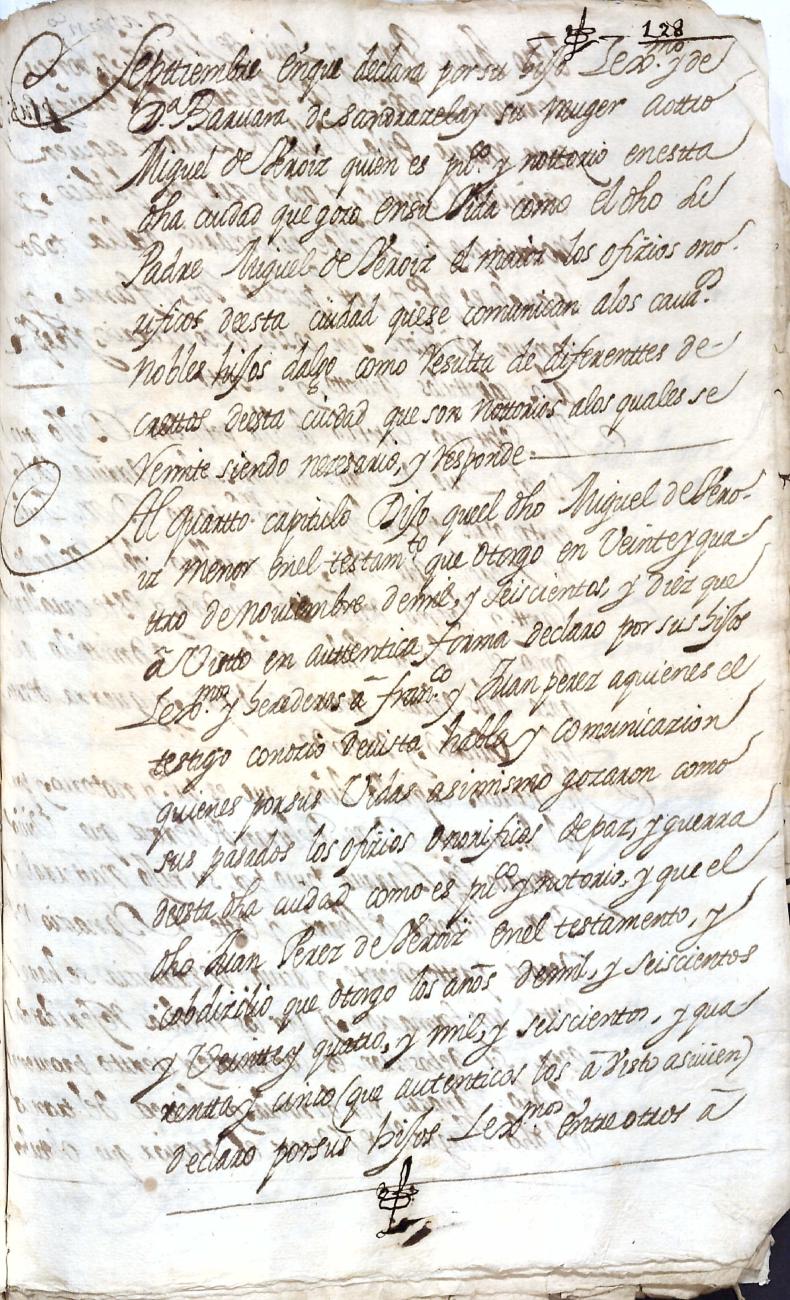 128
Septtiembre enque declara por su hiso Lexmo. y de
D.a Baruara de Sandrazelay su muger aotro
Miguel de Veroiz quien es pu.co y nottorio enestta
dha ciudad que gozo ensu Vida como el dho su
Padre Miguel de Veroiz el maior los ofizios ono-
rificos deesta ciudad quese comunican alos caua.os
Nobles hijos dalgo como resulta de diferenttes de-
crettos deesta ciudad que son nottorios alos quales se
remite siendo nezesario, y responde
Al quartto capitulo Dijo queel dho Miguel de Vero-
iz menor enel testam.to que otorgo en Veinte y qua-
ttro de Noviembre demil, y seiscientos, y diez que
ã Visto en auttentica forma declaro por sus hijos
Lexmos. y herederos ã fran.co y Juan perez aquienes el
testigo conozio devista habla y comunicazion
quienes porsus Vidas asimismo gozaron como
sus pasados los ofizios onorificos depaz, y guerra
deesta dha ciudad como es pu.co y notorio, y que el
dho Juan Perez de Veroiz enel testamento, y
cobdizilio que otorgo los años demil, y seiscientos
y Veintte y quatro, y mil, y seiscientos, y qua-
rentta y cinco (que autenticos los ã Visto asiuien)
declaro porsus hijos Lexmos. entre otros ã